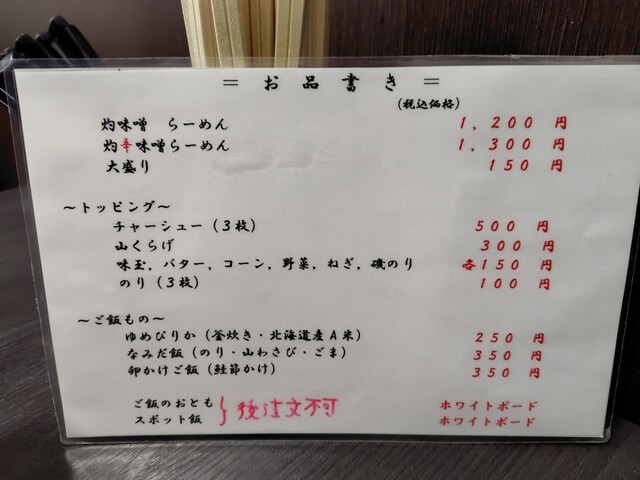 = お品書き =
(税込価格)
灼味噌 らーめん 1,200 円
灼辛味噌らーめん 1,300 円
大盛り 150 円
～トッピング～
チャーシュー(3枚) 500 円
山くらげ 300 円
味玉,バター,コーン,野菜,ねぎ,磯のり 各150 円
のり(3枚) 100 円
～ご飯もの～
ゆめぴりか(釜炊き・北海道産A米) 250 円
なみだ飯(のり・山わさび・ごま) 350 円
卵かけご飯(鮭節かけ) 350 円
ご飯のおとも ホワイトボード
スポット飯 ホワイトボード
} 後注文不可